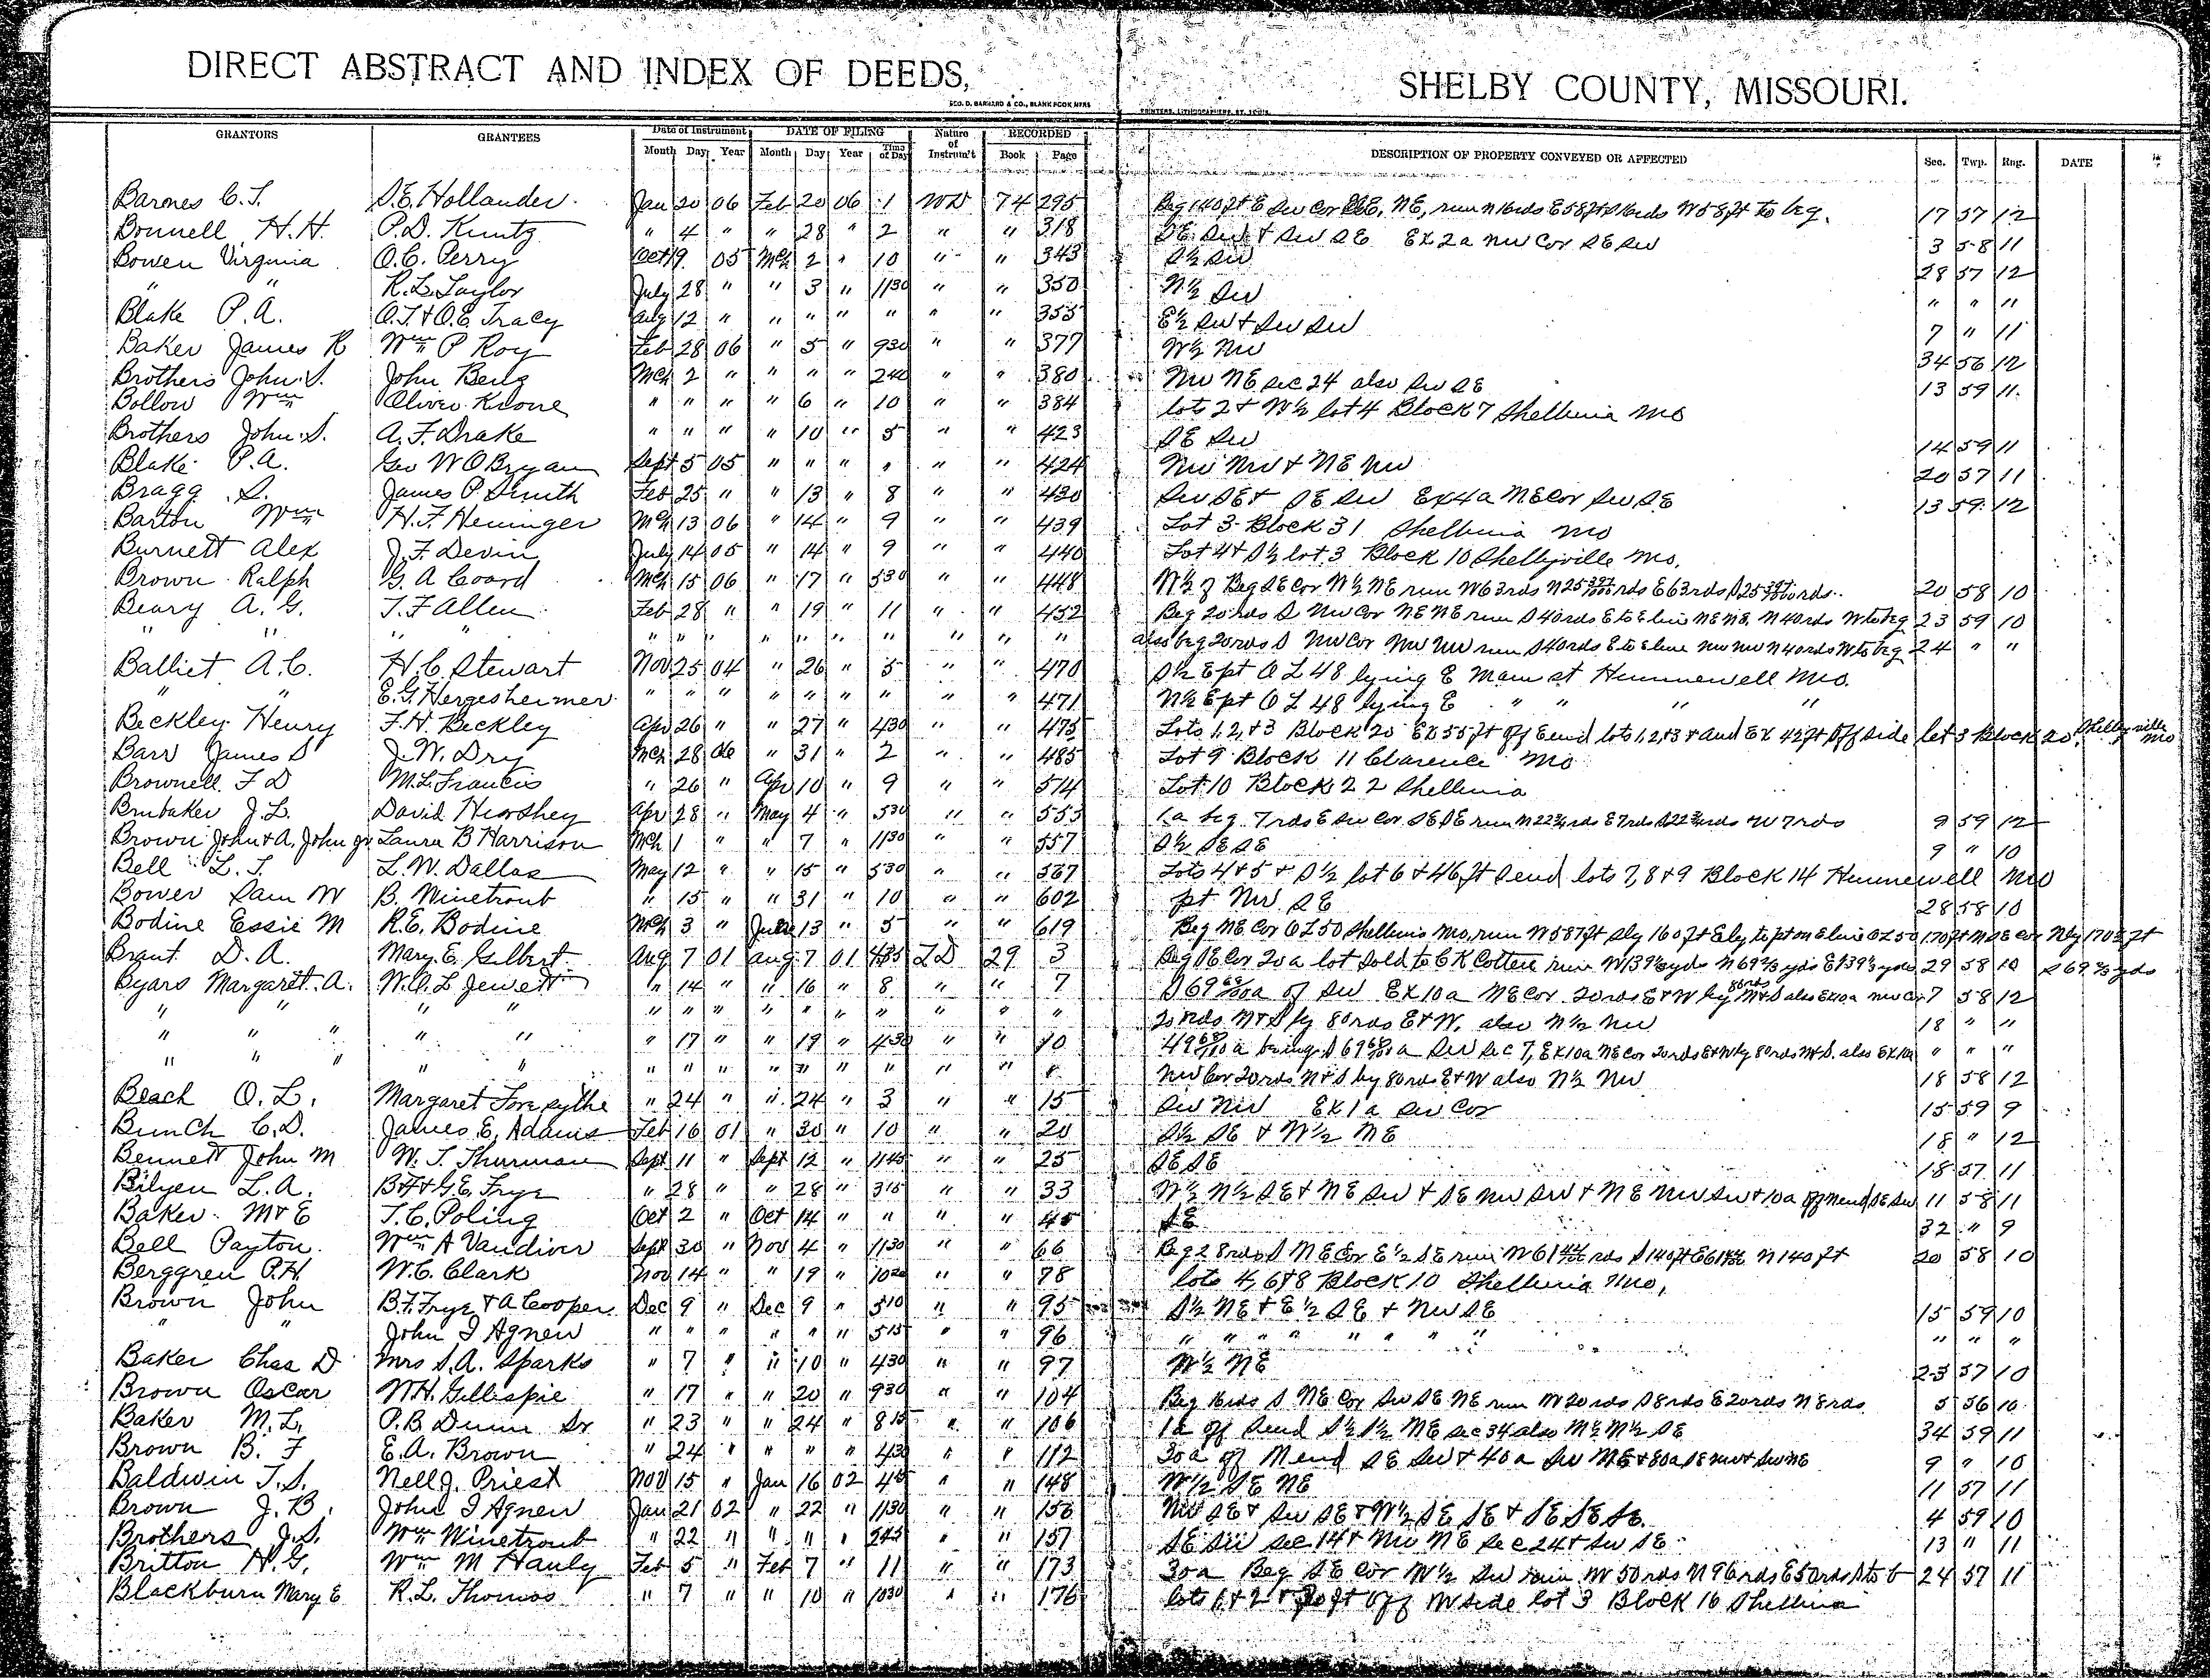 DIRECT ABSTRACT AND INDEX OF DEEDS, SHELBY COUNTY, MISSOURI.
GEO. D. BARNARD & CO., BLANK BOOK MFRS PRINTERS, LITHOGRAPHERS, ST. LOUIS.
GRANTORS GRANTEES Date of Instrument DATE OF FILING Nature of Instrum't RECORDED DESCRIPTION OF PROPERTY CONVEYED OR AFFECTED Sec. Twp. Rng. DATE
Month Day Year Month Day Year Time of Day Book Page
Barnes C.T. S.E. Hollander Jan 20 06 Feb 20 06 1 WD 74 295 Beg 140 ft E Sw Cor NE, run N 16rds E 58ft S 16rds W 58 ft to beg. 17 57 12
Bonnell H.H. P.D. Kuntz " 4 " " 28 " 2 " " 318 SE Sw + Sw SE Ex 2a Nw Cor SE Sw 3 58 11
Bowen Virginia O.C. Perry Oct 19 05 Mch 2 " 10 " " 343 S½ Sw 28 57 12
" " R.L. Taylor July 28 " " 3 " 1130 " " 350 N½ Sw " " "
Blake P.A. O.T. + O.E. Tracy Aug 12 " " " " " " " 355 E½ Sw + Sw Sw 7 " 11
Baker James R Wm P Roy Feb 28 06 " 5 " 930 " " 377 W½ Nw 34 56 12
Brothers John S. John Berg Mch 2 " " " " 240 " " 380 Nw NE sec 24 also Sw SE 13 59 11
Bollow Wm Oliver Krone " " " " 6 " 10 " " 384 lots 2 + W½ lot 4 Block 7 Shelbina Mo
Brothers John S. A.F. Drake " " " " 10 " 5 " " 423 SE Sw 14 59 11
Blake P.A. Geo W OBryan Sept 5 05 " " " " " " 424 Nw Nw + NE Nw 20 57 11
Bragg S. James P Smith Feb 25 " " 13 " 8 " " 430 Sw SE + SE Sw Ex 4a NE Cor Sw SE 13 59 12
Barton Wm H.F. Heninger Mch 13 06 " 14 " 9 " " 439 Lot 3 Block 31 Shelbina Mo
Burnett Alex J.F. Devin July 14 05 " 14 " 9 " " 440 Lot 4 + S½ lot 3 Block 10 Shelbyville Mo.
Brown Ralph G.A Coard Mch 15 06 " 17 " 530 " " 448 W½ of Beg SE Cor W½ NE run W 63rds N 25 rds E 63rds S 25 rds 20 58 10
Beary A.G. T.F Allen Feb 28 " " 19 " 11 " " 452 Beg 20 rds S Nw Cor NE NE run S 40rds E to E line NE NE N 40rds W to beg 23 59 10
" " " " " " " " " " " " " " also beg 20rds S Nw Cor Nw Nw run S 40rds E to E line Nw Nw N 40rds W to beg 24 " "
Balliet A.C. H.C Stewart Nov 25 04 " 26 " 5 " " 470 S½ E pt O L 48 lying E Main st Hunnewell Mo.
" " E.G. Hergesheimer " " " " " " " " " 471 N½ E pt O L 48 lying E " " " "
Beckley Henry F.H. Beckley Apr 26 " " 27 " 430 " " 475 Lots 1, 2, + 3 Block 20 Ex 55 ft off E end lots 1, 2, + 3 + and Ex 42 ft off side lot 3 Block 20, Shelbyville Mo
Barr James S J.W. Dry Mch 28 06 " 31 " 2 " " 485 Lot 9 Block 11 Clarence Mo
Brownell F D M.L. Francis " 26 " Apr 10 " 9 " " 514 Lot 10 Block 22 Shelbina
Brubaker J.L. David Hershey Apr 28 " May 4 " 530 " " 553 1a beg 7rds E Sw Cor SE SE run N 22¾rds E 7rds S 22¾rds W 7rds 9 59 12
Brown John + A, John gr Laura B Harrison Mch 1 " " 7 " 1130 " " 557 S½ SE SE 9 " 10
Bell L.T. L.W. Dallas May 12 " " 15 " 530 " " 567 Lots 4 + 5 + S½ lot 6 + 46 ft S end lots 7, 8 + 9 Block 14 Hunnewell Mo
Bower Sam W B. Winetroub " 15 " " 31 " 10 " " 602 pt Nw SE 28 58 10
Bodine Essie M R.E. Bodine Mch 3 " June 13 " 5 " " 619 Beg NE Cor OL 50 Shelbina Mo, run W 587 ft Sly 160 ft Ely to pt on E line OL 50 170 ft N SE Cor Nly 170½ ft
Brant D.A. Mary E Gilbert Aug 7 01 Aug 7 01 435 TD 29 3 Beg SE Cor 20a lot sold to C K Cotten run W 139½yds N 69⅔ yds E 139½ yds 29 58 10 S 69⅔ yds
Byars Margaret A. W.O.L Jewett " 14 " " 16 " 8 " " 7 S 69 68/100a of Sw Ex 10a NE Cor 20rds E+W by 80rds N+S also Ex 10a Nw Cor 7 58 12
" " " " " " " " " " " " " " " 20 rds N+S by 80rds E+W, also N½ Nw 18 " "
" " " " " " 17 " " 19 " 430 " " 10 49 68/100a being S 69 68/100a Sw sec 7, Ex 10a NE Cor 20rds E+W by 80rds N+S. also Ex 10a " " "
" " " " " " " " " " " " " " " Nw Cor 20rds N+S by 80rds E+W also N½ Nw 18 58 12
Beach O.L. Margaret Forsythe " 24 " " 24 " 3 " " 15 Sw Nw Ex 1a Sw Cor 15 59 9
Bunch C.D. James E. Adams Feb 16 01 " 30 " 10 " " 20 S½ SE + W½ NE 18 " 12
Bennett John M W.T. Thurman Sept 11 " Sept 12 " 1145 " " 25 SE SE 18 57 11
Bilyeu L.A. B.F + G.E. Frye " 28 " " 28 " 315 " " 33 W½ N½ SE + NE Sw + SE Nw Sw + NE Nw Sw + 10a off N end SE Sw 11 58 11
Baker M + E T.C. Poling Oct 2 " Oct 14 " " " " 45 SE 32 " 9
Bell Payton Wm A Vandiver Sept 30 " Nov 4 " 1130 " " 66 Beg 28rds S NE Cor E½ SE run W 61 rds S 140 ft E 61 N 140 ft 20 58 10
Berggren P.H. W.C. Clark Nov 14 " " 19 " 1020 " " 78 lots 4, 6 + 8 Block 10 Shelbina Mo,
Brown John B.F. Frye + A Cooper Dec 9 " Dec 9 " 510 " " 95 S½ NE + E½ SE + Nw SE 15 59 10
" " John I Agnew " " " " " " 515 " " 96 " " " " " " " " " " "
Baker Chas D Mrs S.A. Sparks " 7 " " 10 " 430 " " 97 W½ NE 23 57 10
Brown Oscar W.H. Gillispie " 17 " " 20 " 930 " " 104 Beg 16rds S NE Cor Sw SE NE run W 20rds S 8rds E 20rds N 8rds 5 56 10
Baker M.L. P.B. Dunn Sr " 23 " " 24 " 815 " " 106 1a off S end S½ S½ NE sec 34 also N½ N½ SE 34 59 11
Brown B.F E.A. Brown " 24 " " " " 430 " " 112 30a off N end SE Sw + 40a Sw NE + 80a SE Nw + Sw NE 9 " 10
Baldwin T.S. Nell J. Priest Nov 15 " Jan 16 02 445 " " 148 W½ SE NE 11 57 11
Brown J.B. John I Agnew Jan 21 02 " 22 " 1130 " " 156 Nw SE + Sw SE + W½ SE SE + SE SE SE. 4 59 10
Brothers J.S. Wm Winetroub " 22 " " " " 245 " " 157 SE Sw sec 14 + Nw NE sec 24 + Sw SE 13 " 11
Britton H.G. Wm M Hanly Feb 5 " Feb 7 " 11 " " 173 30a Beg SE Cor W½ Sw run W 50rds N 96rds E 50rds S to b 24 57 11
Blackburn Mary E R.L. Thomas " 7 " " 10 " 1030 " " 176 lots 1 + 2 + 20 ft off W side lot 3 Block 16 Shelbina